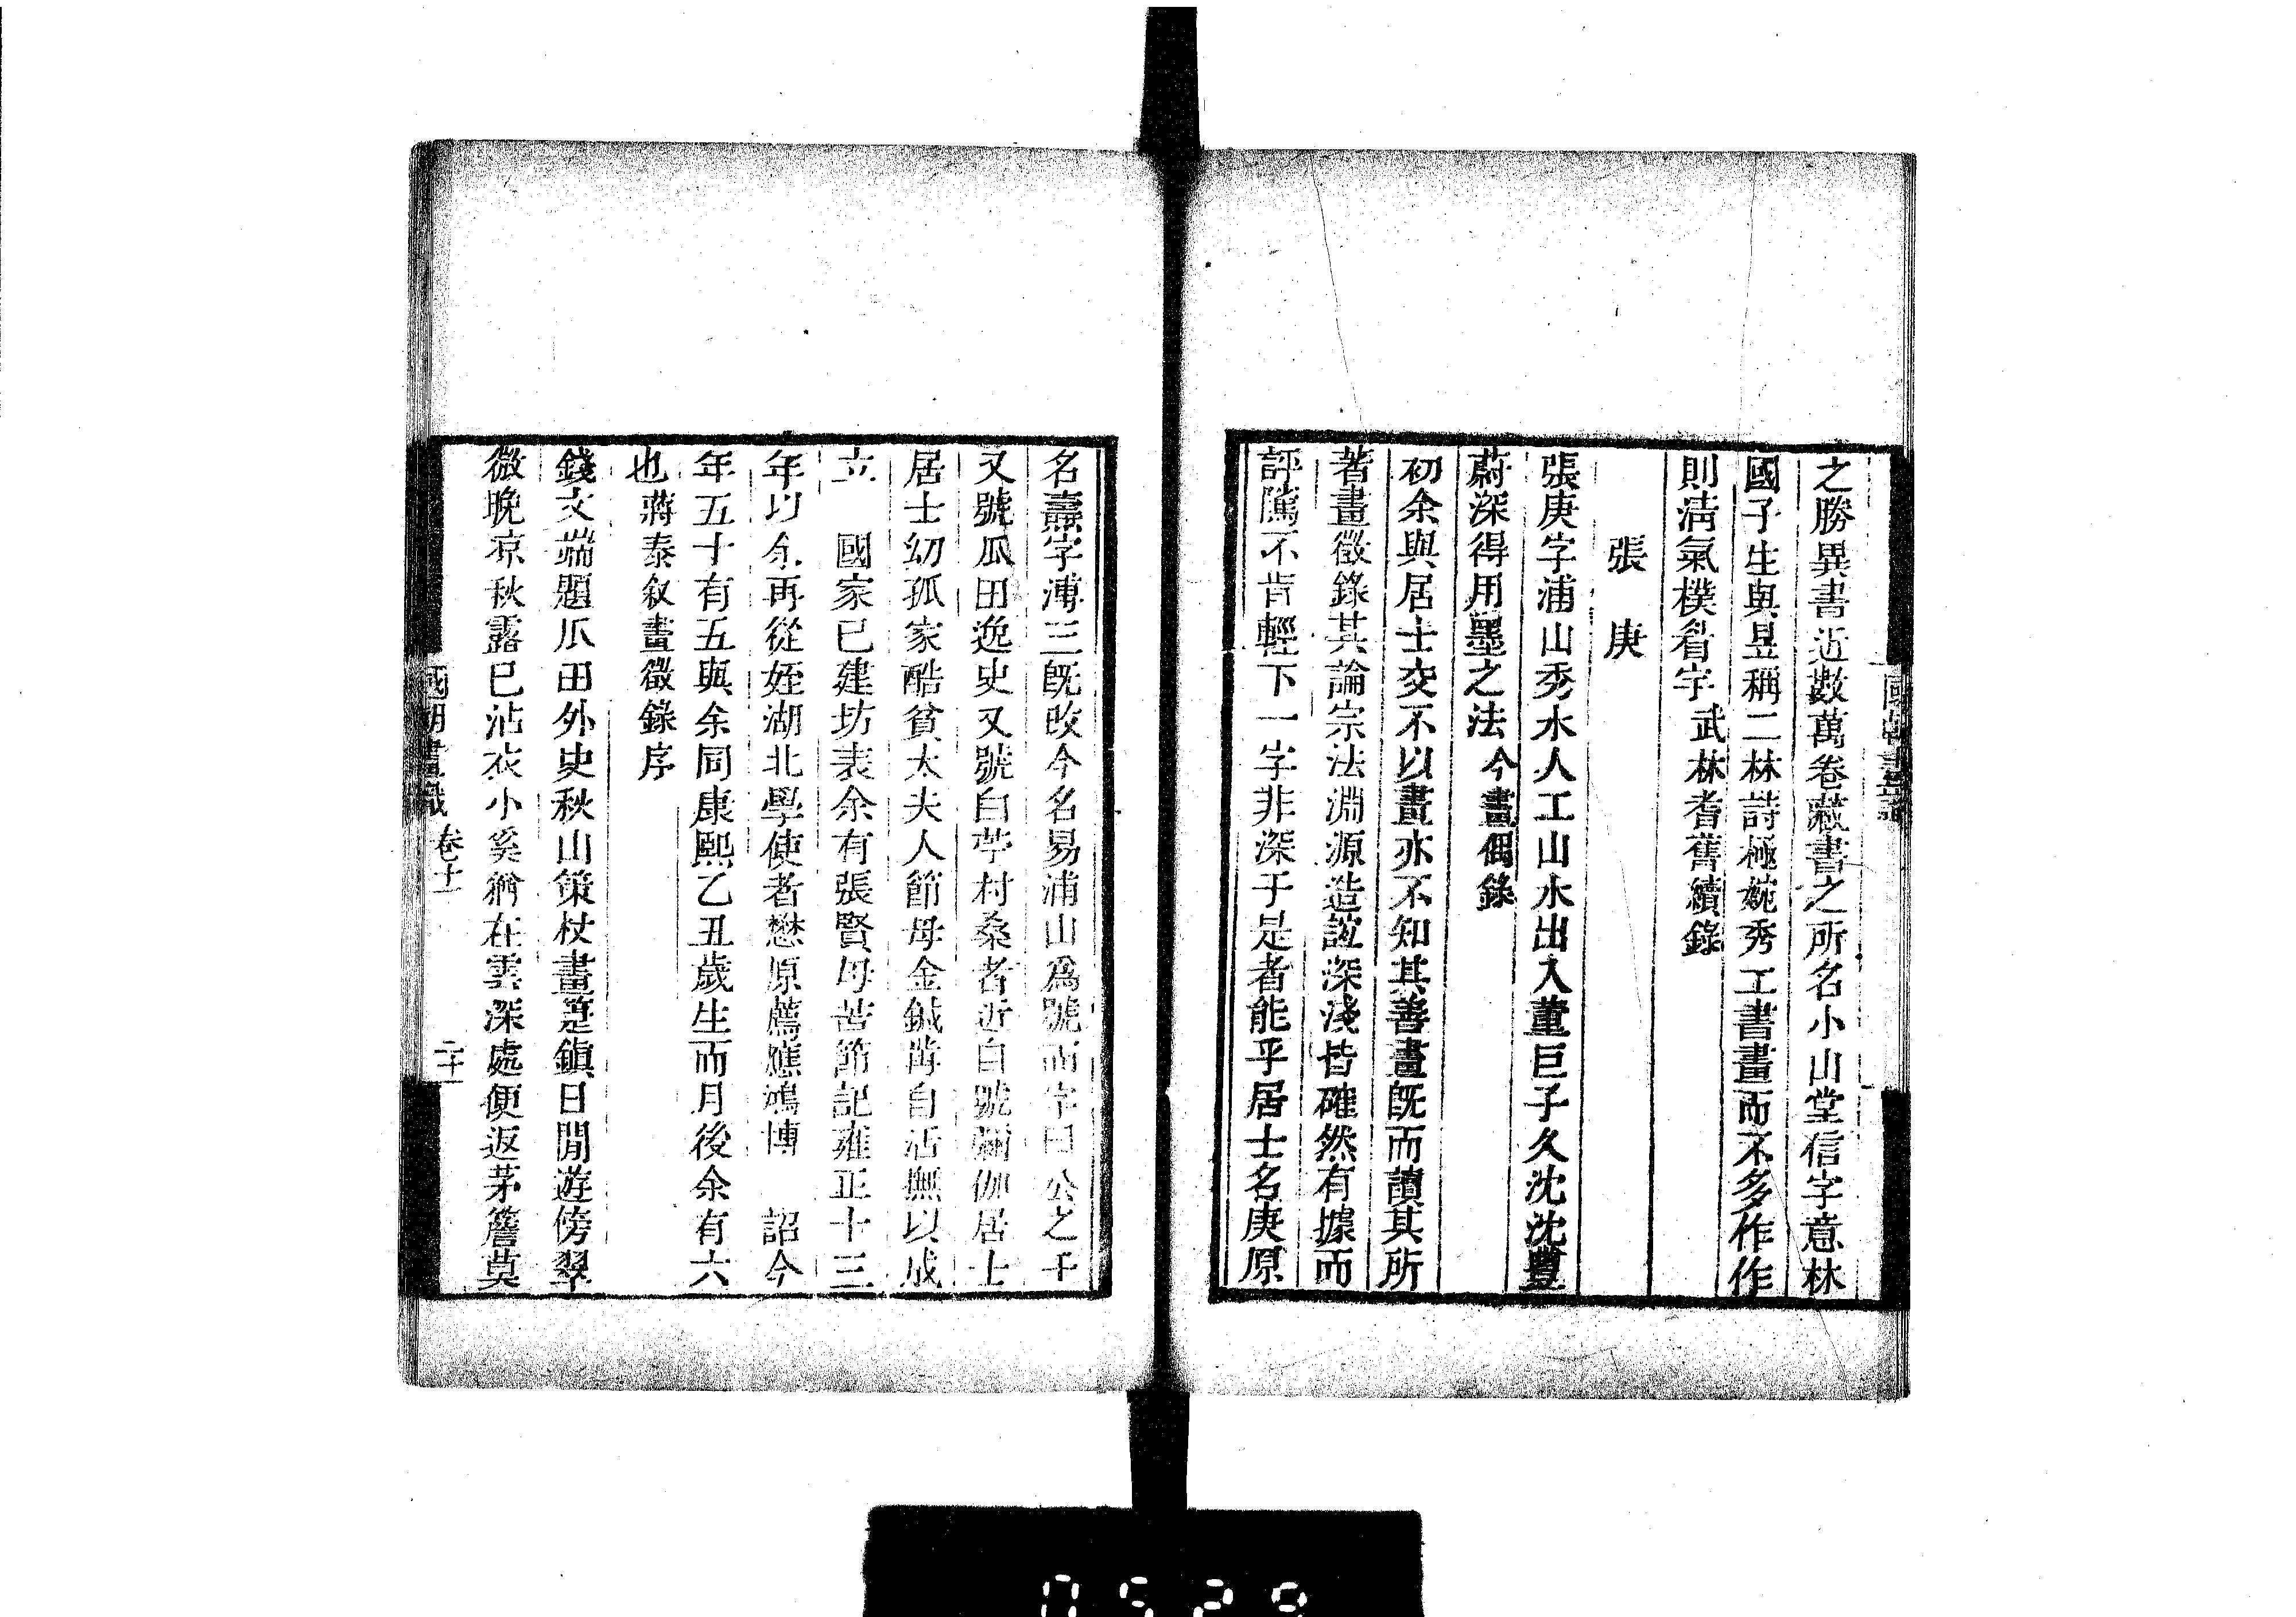 之勝異書近數萬卷藏書之所名小山堂信字意林
國子生與昱稱二林詩極婉秀工書畫而不多作作
則清氣樸眘宇武林耆舊續錄
張庚
張庚字浦山秀水人工山水出入董巨子久沈沈豐
蔚深得用墨之法今畫偶錄
初余與居士交不以畫亦不知其善畫旣而讀其所
著畫徵錄其論宗法淵源造詣深淺皆確然有據而
評隲不肯輕下一字非深于是者能乎居士名庚原
名燾字溥三旣改今名易浦山爲號而字曰公之干
又號瓜田逸史又號白苧村桑者近自號彌伽居士
居士幼孤家酷貧太夫人節母金鍼黹自活撫以成
立國家已建坊表余有張賢母苦節記雍正十三
年以余再從姪湖北學使者懋原薦應鴻博詔今
年五十有五與余同康熙乙丑歲生而月後余有六
也蔣泰叙畫徵錄序
錢文端題瓜田外史秋山策杖畫筵鎮日閒遊傍翠
微晚凉秋露已沾衣小奚猶在雲深處便返茅簷莫
國朝畫識卷十二十一